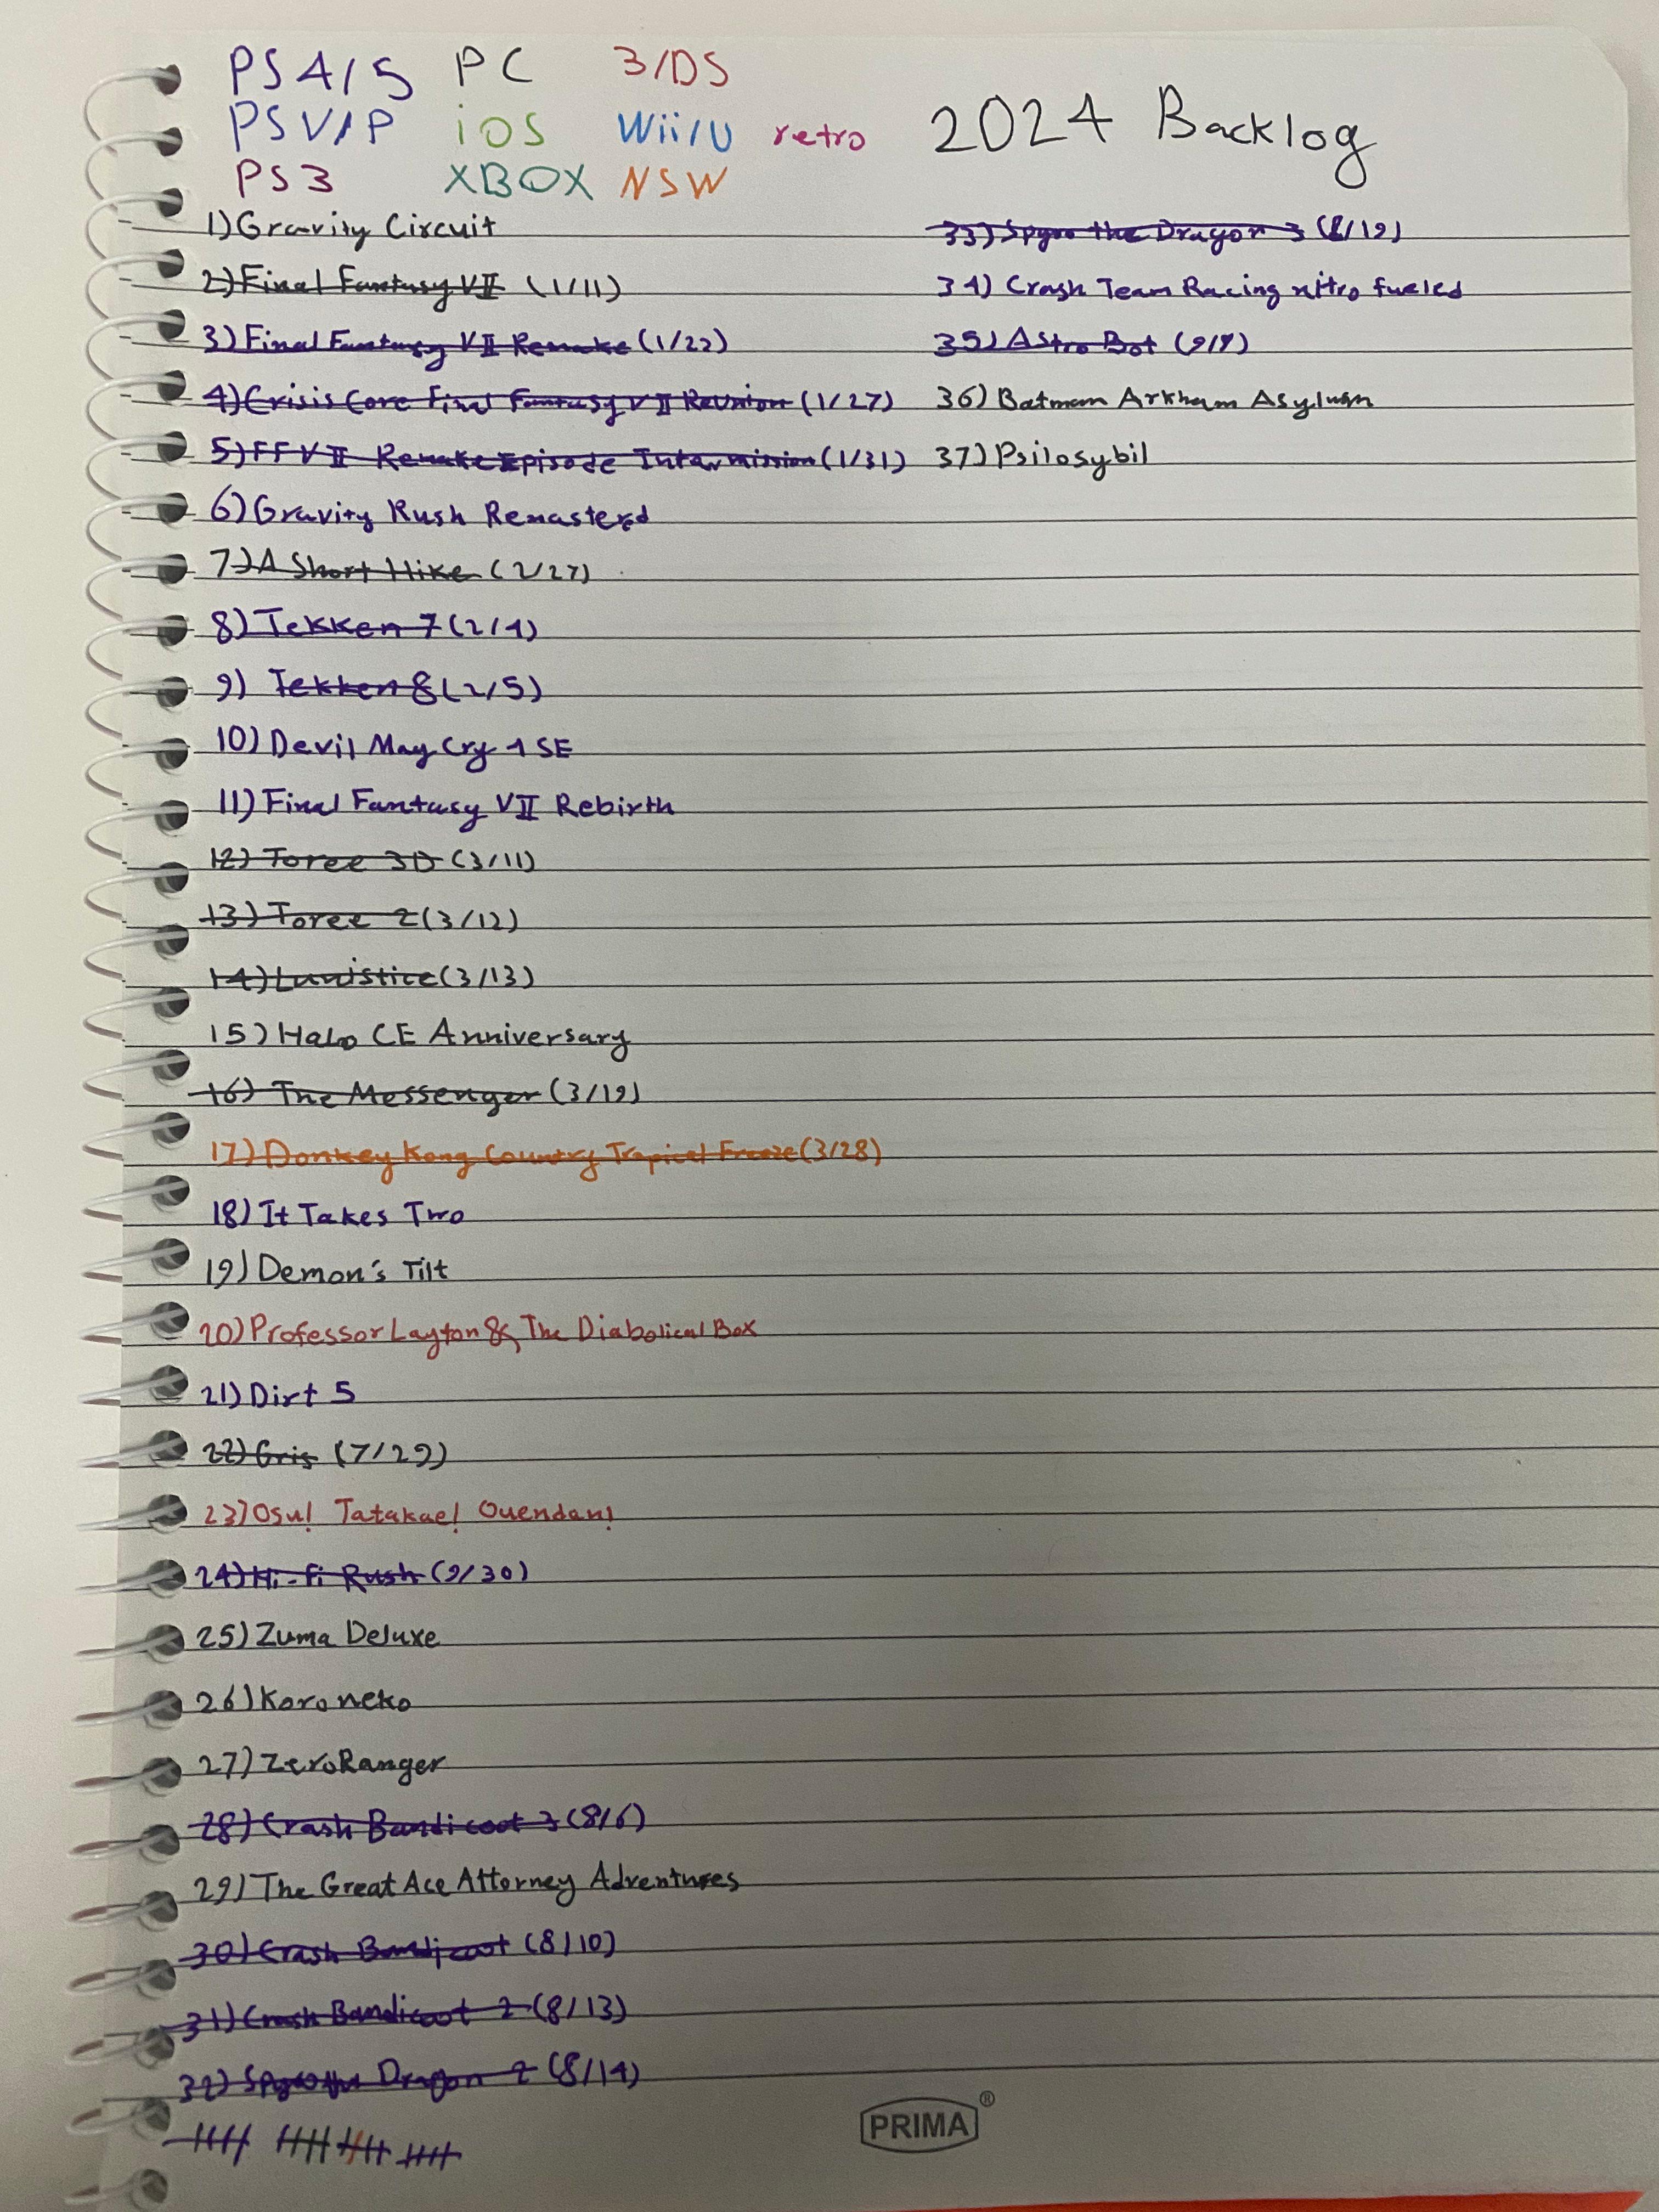 PS4/5 PC 3/DS
PSV/P iOS Wii/U retro
PS3 XBOX NSW
2024 Backlog
1) Gravity Circuit
2) Final Fantasy VII (1/11)
3) Final Fantasy VII Remake (1/22)
4) Crisis Core Final Fantasy VII Reunion (1/27)
5) FFVII Remake Episode Intermission (1/31)
6) Gravity Rush Remastered
7) A Short Hike (2/27)
8) Tekken 7 (2/4)
9) Tekken 8 (2/5)
10) Devil May Cry 4 SE
11) Final Fantasy VII Rebirth
12) Toree 3D (3/11)
13) Toree 2 (3/12)
14) Lunistice (3/13)
15) Halo CE Anniversary
16) The Messenger (3/19)
17) Donkey Kong Country Tropical Freeze (3/28)
18) It Takes Two
19) Demon's Tilt
20) Professor Layton & The Diabolical Box
21) Dirt 5
22) Gris (7/29)
23) Osu! Tatakae! Ouendan!
24) Hi-Fi Rush (9/30)
25) Zuma Deluxe
26) Koroneko
27) ZeroRanger
28) Crash Bandicoot 3 (8/6)
29) The Great Ace Attorney Adventures
30) Crash Bandicoot (8/10)
31) Crash Bandicoot 2 (8/13)
32) Spyro the Dragon 2 (8/14)
33) Spyro the Dragon 3 (8/19)
34) Crash Team Racing nitro fueled
35) Astro Bot (9/9)
36) Batman Arkham Asylum
37) Psilosybil
PRIMA®